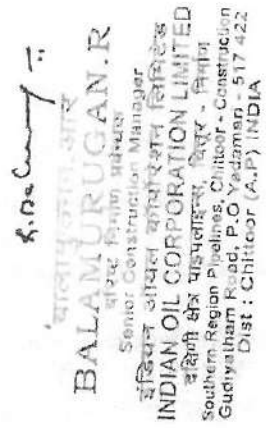 बालामुरुगन आर
BALAMURUGAN.R
वरिष्ठ निर्माण प्रबंधक
Senior Construction Manager
इंडियन ऑयल कॉर्पोरेशन लिमिटेड
INDIAN OIL CORPORATION LIMITED
दक्षिणी क्षेत्र पाइपलाइन्स, चित्तूर - निर्माण
Southern Region Pipelines, Chittoor - Construction
Gudiyatham Road, P.O Yadamari - 517 422
Dist : Chittoor (A.P) INDIA